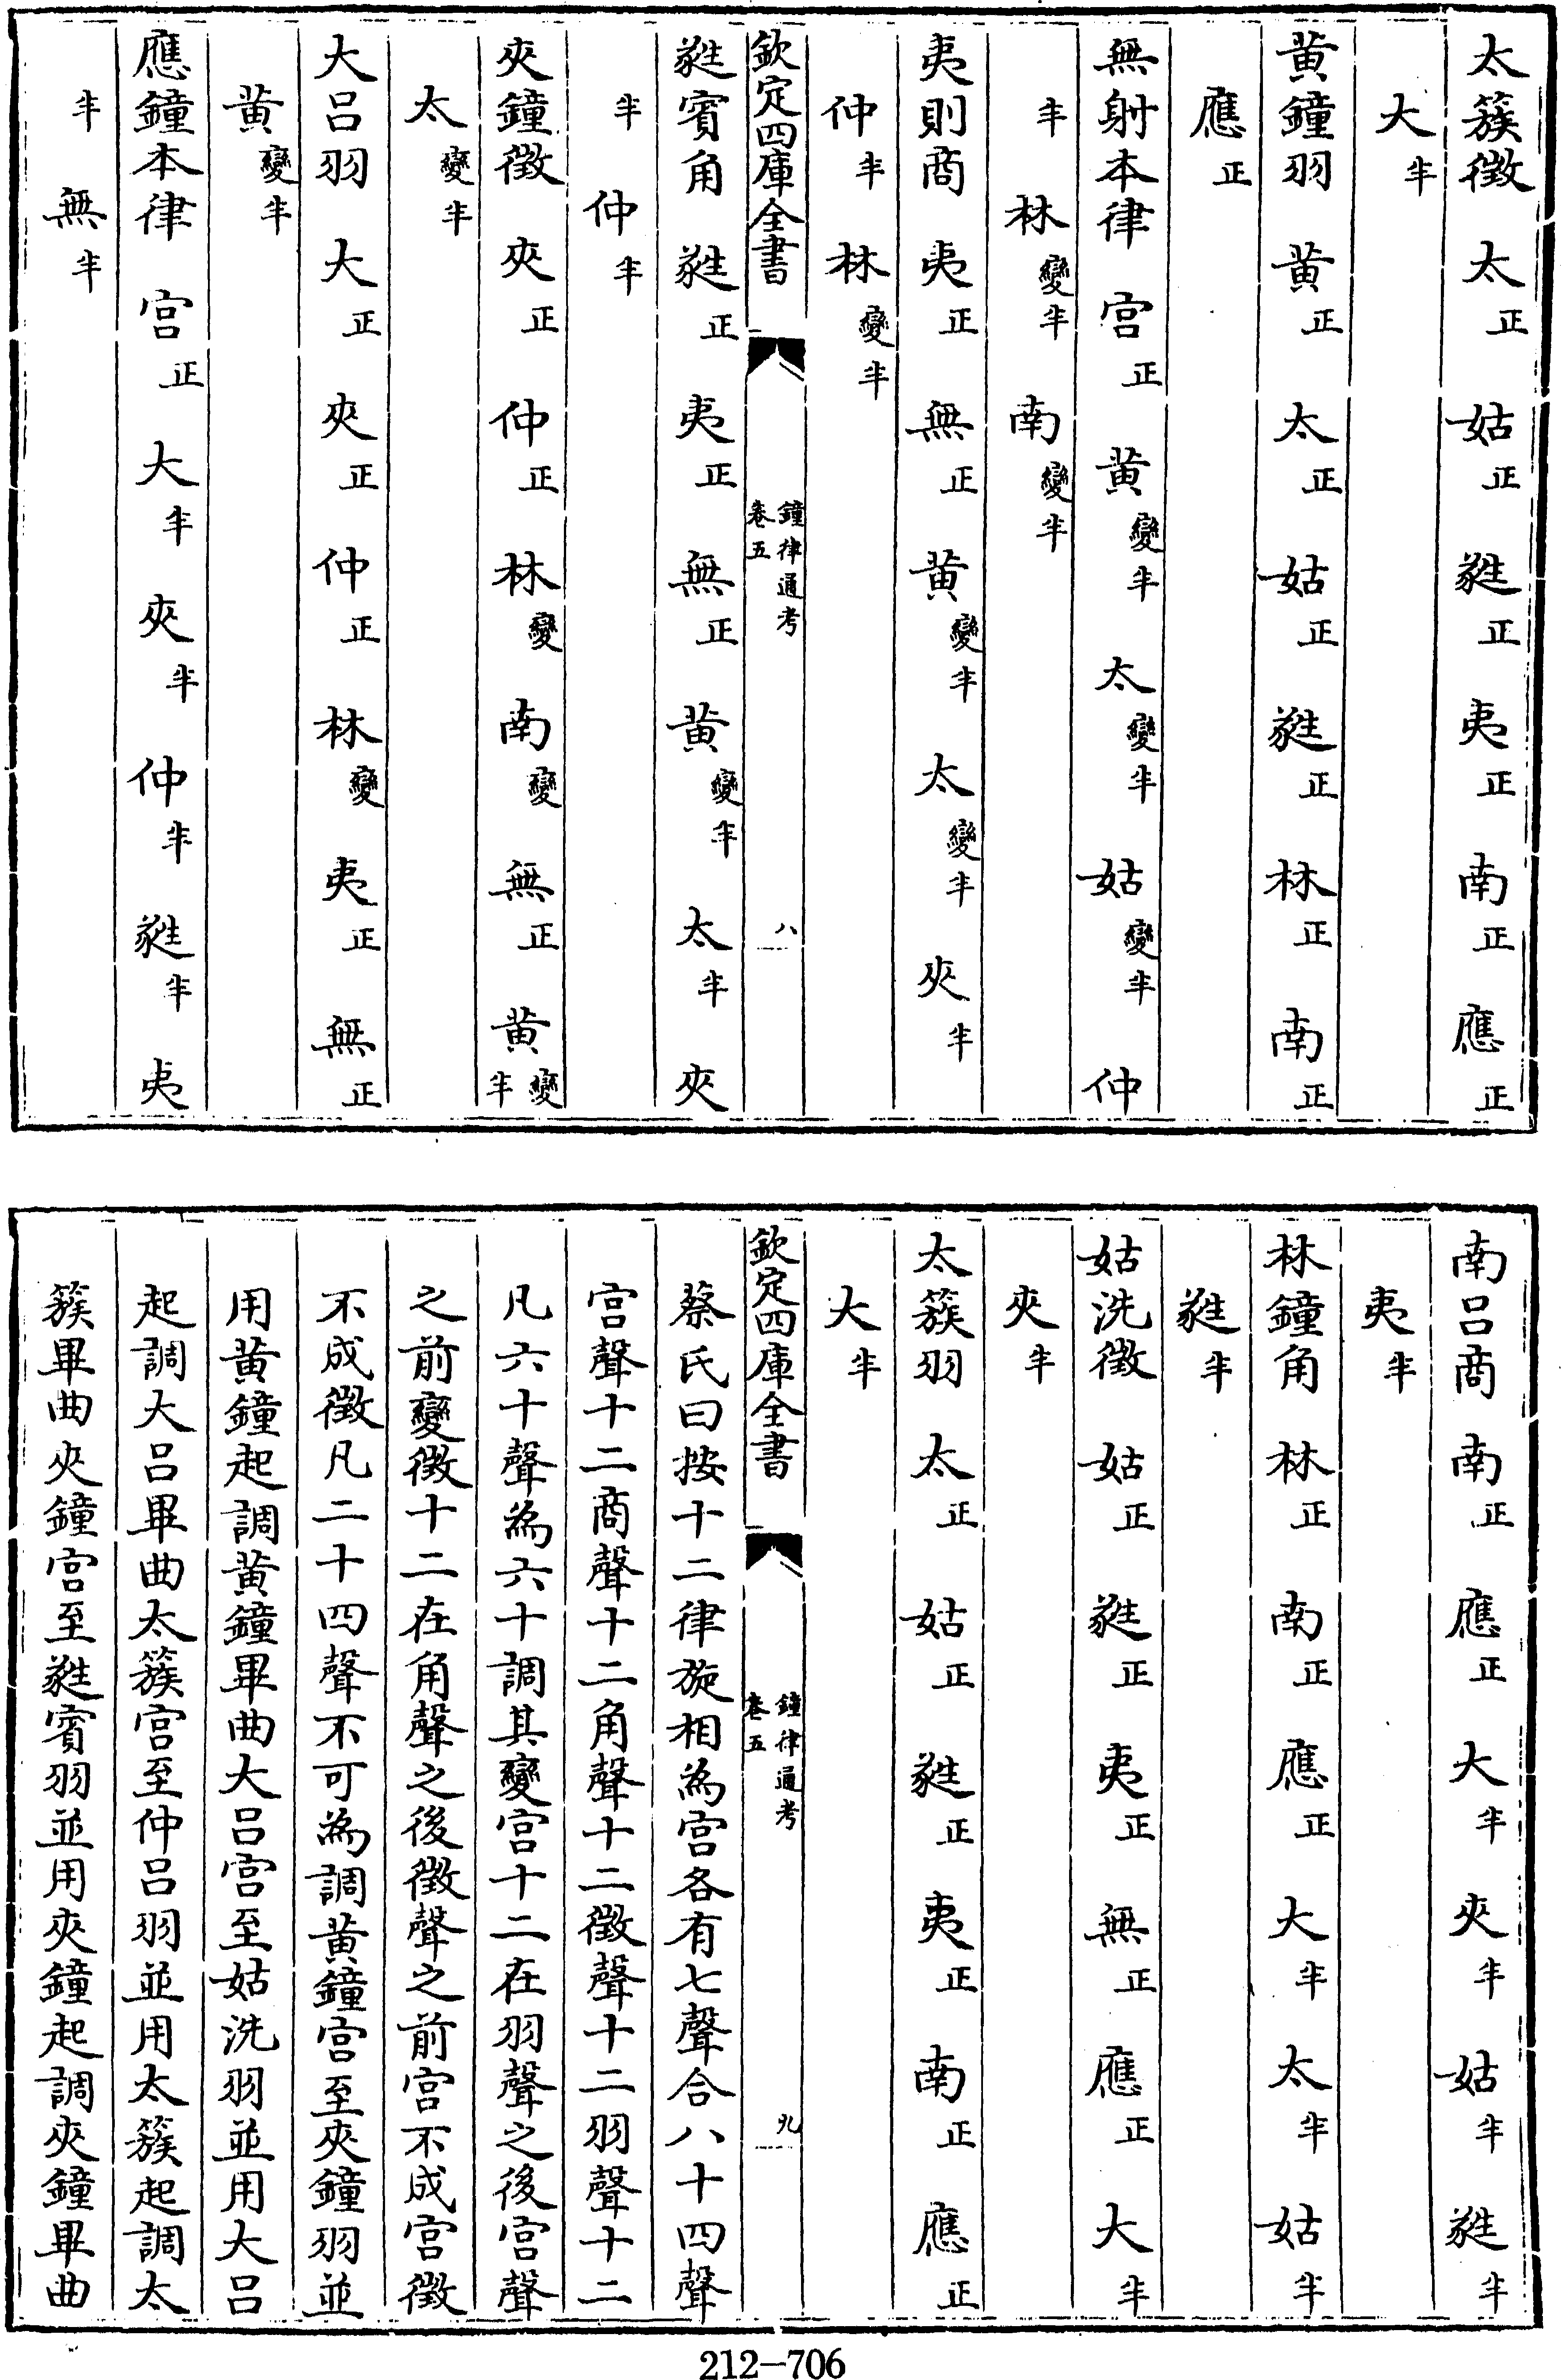 太簇徵　太正　姑正　蕤正　夷正　南正　應正
大半
黄鐘羽　黄正　太正　姑正　蕤正　林正　南正
應正
無射本律　宫正　黄變半　太變半　姑變半　仲
半　林變半　南變半
夷則商　夷正　無正　黄變半　太變半　夾半
仲半　林變半
欽定四庫全書
鐘律通考
卷五
八
蕤賓角　蕤正　夷正　無正　黄變半　太半　夾
半　仲半
夾鐘徵　夾正　仲正　林變　南變　無正　黄變半
太變半
大吕羽　大正　夾正　仲正　林變　夷正　無正
黄變半
應鐘本律　宫正　大半　夾半　仲半　蕤半　夷
半　無半
南吕商　南正　應正　大半　夾半　姑半　蕤半
夷半
林鐘角　林正　南正　應正　大半　太半　姑半
蕤半
姑洗徵　姑正　蕤正　夷正　無正　應正　大半
夾半
太簇羽　太正　姑正　蕤正　夷正　南正　應正
大半
欽定四庫全書
鐘律通考
卷五
九
蔡氏曰按十二律旋相為宫各有七聲合八十四聲
宫聲十二商聲十二角聲十二徵聲十二羽聲十二
凡六十聲為六十調其變宫十二在羽聲之後宫聲
之前變徵十二在角聲之後徵聲之前宫不成宫徵
不成徵凡二十四聲不可為調黄鐘宫至夾鐘羽並
用黄鐘起調黄鐘畢曲大吕宫至姑洗羽並用大吕
起調大吕畢曲太簇宫至仲吕羽並用太簇起調太
簇畢曲夾鐘宫至蕤賓羽並用夾鐘起調夾鐘畢曲
212-706